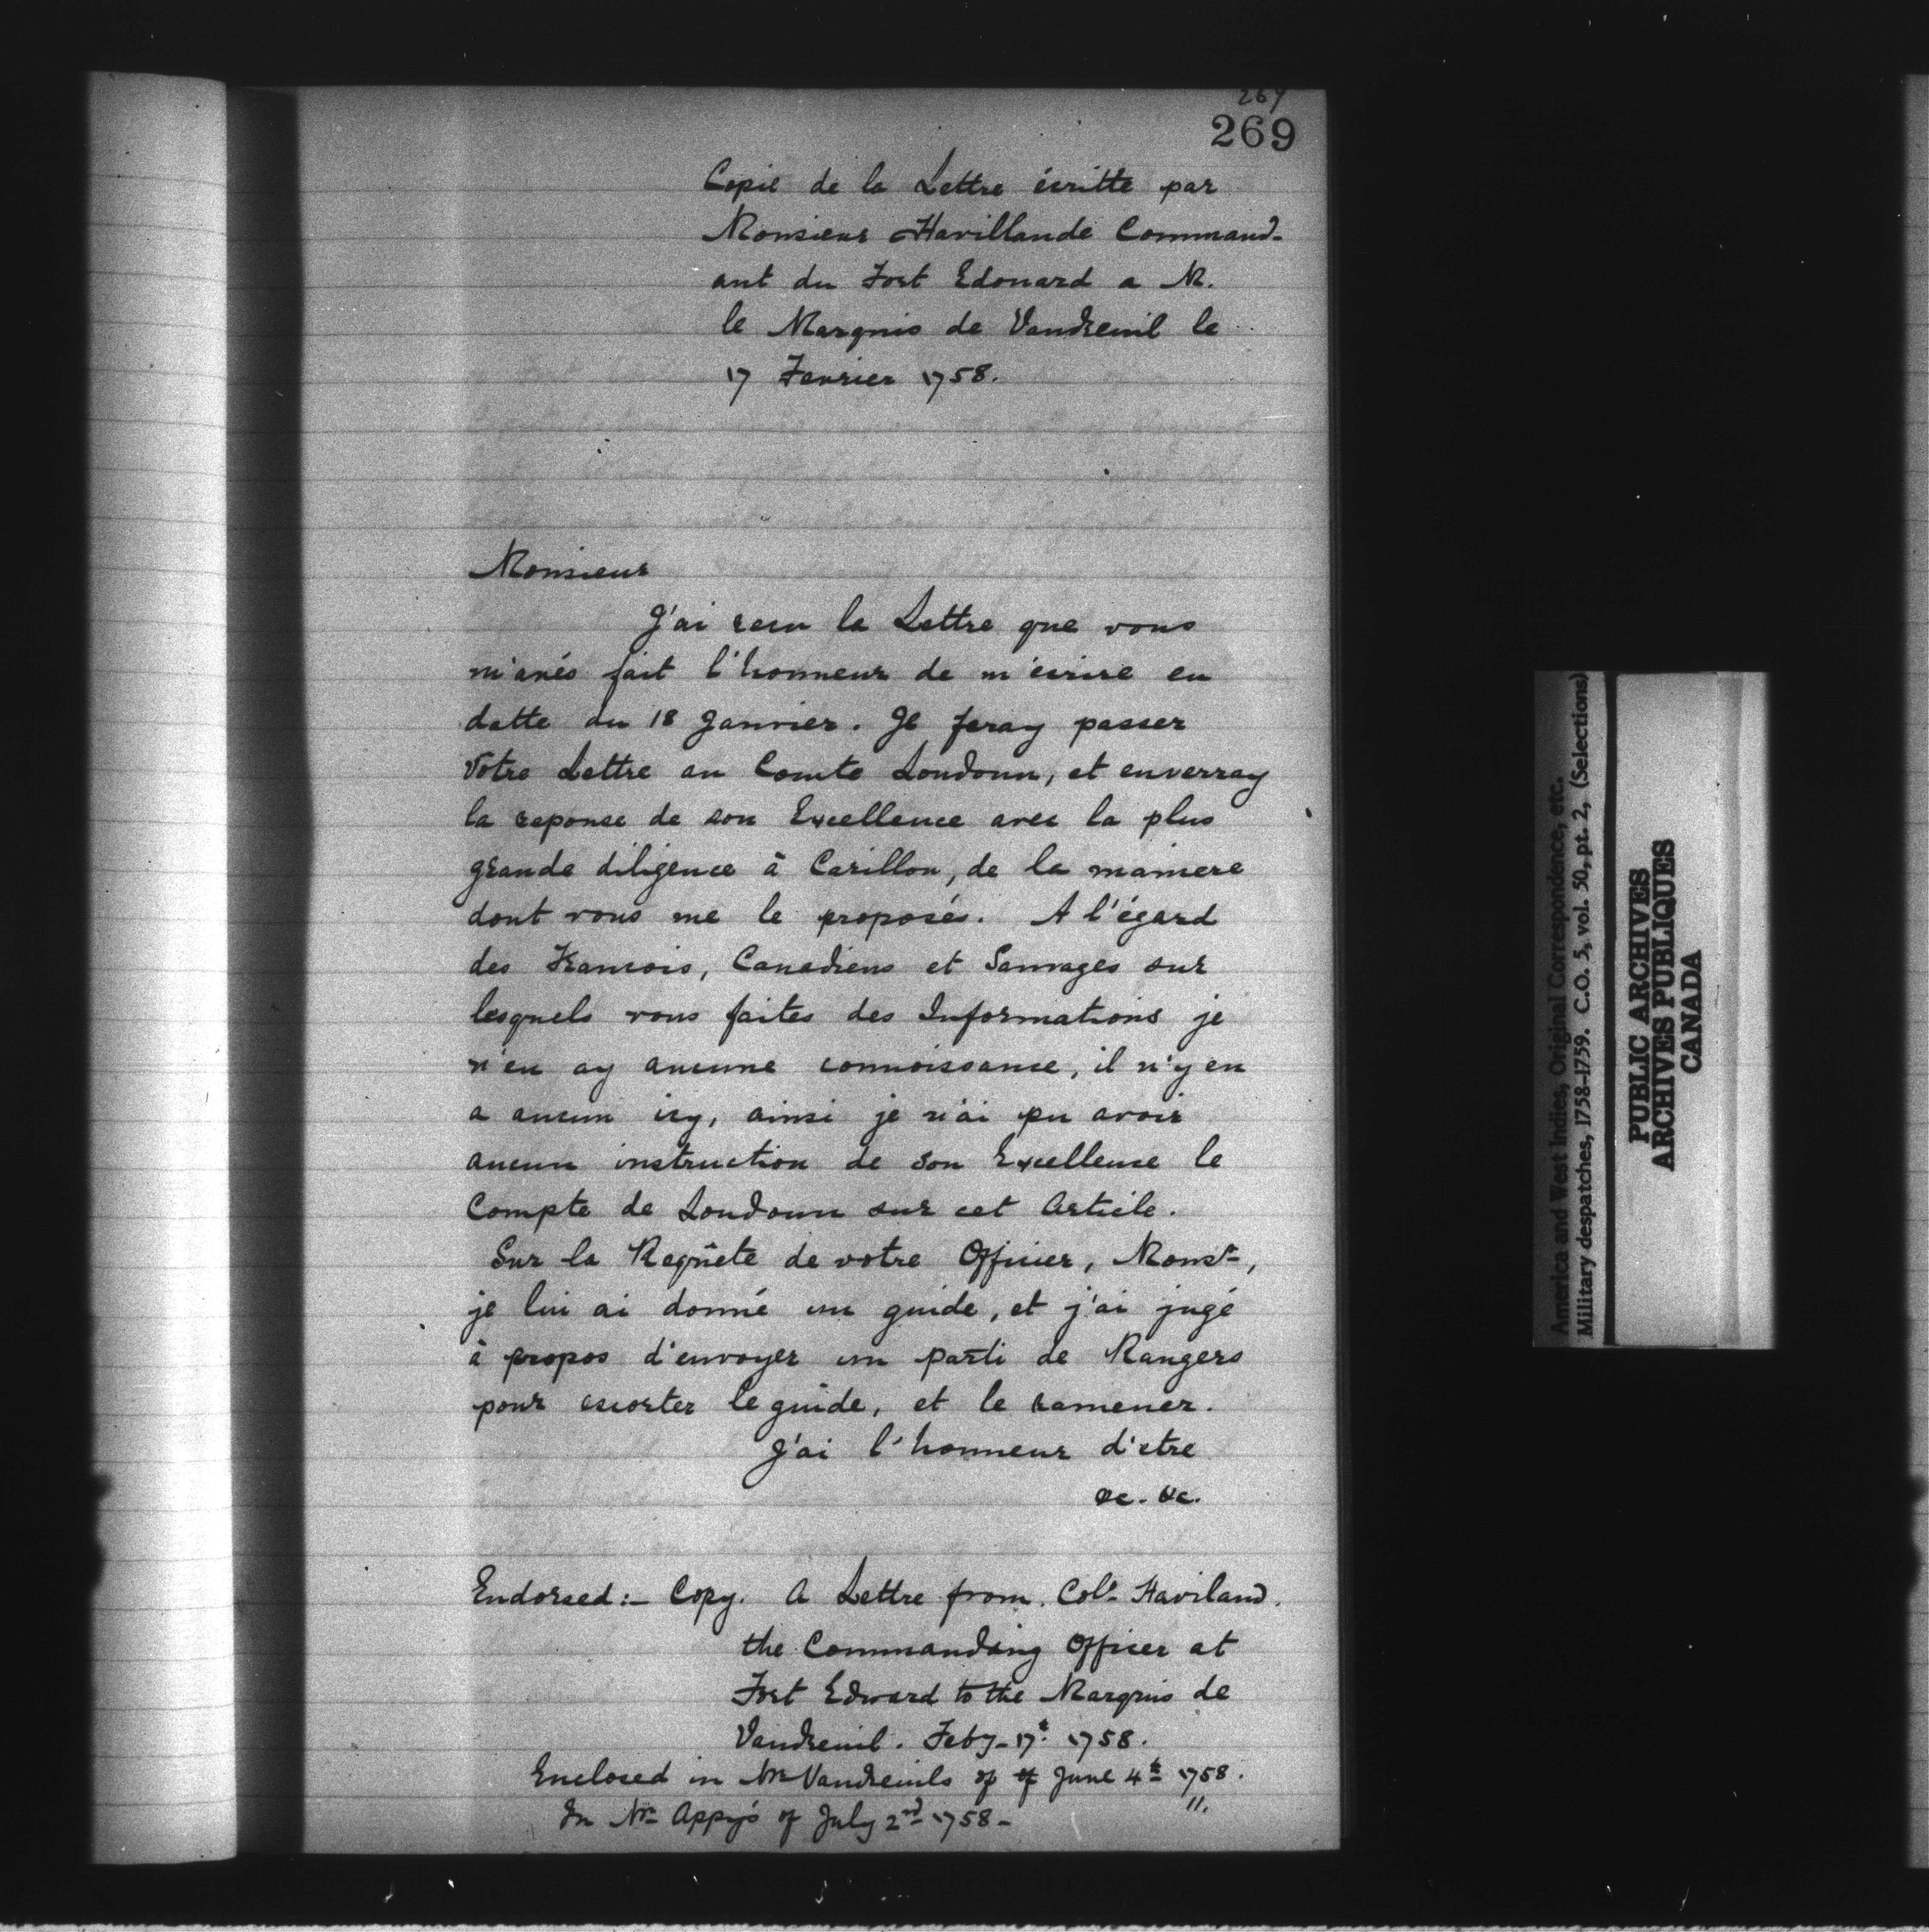 267
269
Copie de la Lettre écritte par
Monsieur Havillande Command-
ant du Fort Edouard a M.
le Marquis de Vaudreuil le
17 Fevrier 1758.
Monsieur
J'ai recu la Lettre que vous
m'avés fait l'honneur de m'écrire en
datte du 18 Janvier. Je feray passer
votre Lettre au Comte Loudoun, et enverray
la reponse de son Excellence avec la plus
grande diligence à Carillon, de la maniere
dont vous me le proposés. A l'égard
des Francois, Canadiens et Sauvages sur
lesquels vous faites des Informations je
n'en ay aucune connoissance, il n'y en
a aucun icy, ainsi je n'ai pu avoir
aucun instruction de Son Excellence le
Compte de Loudoun sur cet Article.
Sur la Requête de votre Officier, Monsr.,
je lui ai donné un guide, et j'ai jugé
à propos d'envoyer un parti de Rangers
pour escorter le guide, et le ramener.
J'ai l'honneur d'etre
&c. &c.
Endorsed:- Copy. A Lettre from Colo. Haviland.
the Commanding Officer at
Fort Edward to the Marquis de
Vaudreuil. Feby. 17t. 1758.
Enclosed in Mr. Vaudreuils of of June 4th 1758.
11.
In Mr. Appy's of July 2nd 1758-
America and West Indies, Original Correspondence, etc.
Military despatches, 1758-1759. C.O. 5, vol. 50, pt. 2, (Selections)
PUBLIC ARCHIVES
ARCHIVES PUBLIQUES
CANADA